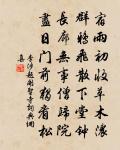 宿雨初收草木濃
群鴉飛散下堂鐘
長廊無事僧歸院
盡日門前獨看松
李涉題開聖寺詩詞典網
集